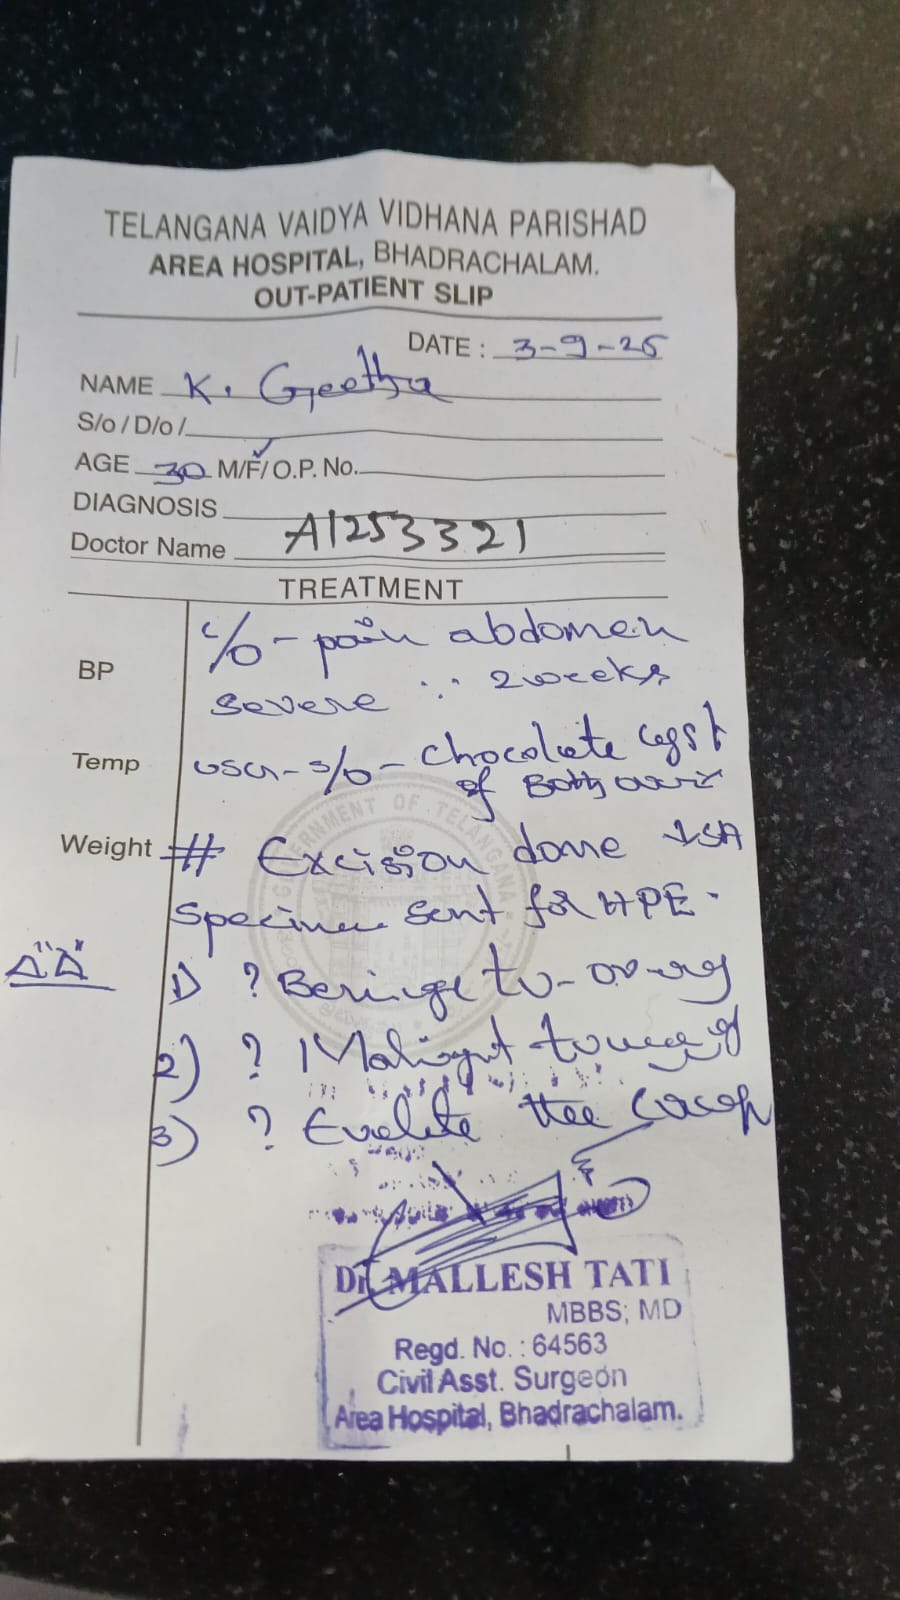 TELANGANA VAIDYA VIDHANA PARISHAD
AREA HOSPITAL, BHADRACHALAM.
OUT-PATIENT SLIP
DATE : 3-9-25
NAME K. Geetha
S/o / D/o /
AGE 30 M/F/ O.P. No.
DIAGNOSIS
Doctor Name A1253321
TREATMENT
BP
c/o - pain abdomen
severe ∵ 2 weeks
Temp
USG - s/o - chocolate cyst
of Both
Weight
# Excision done
specimen sent for HPE.
1) ? 
2) ? 
3) ? the
GOVERNMENT OF TELANGANA
Dr. MALLESH TATI
MBBS; MD
Regd. No. : 64563
Civil Asst. Surgeon
Area Hospital, Bhadrachalam.